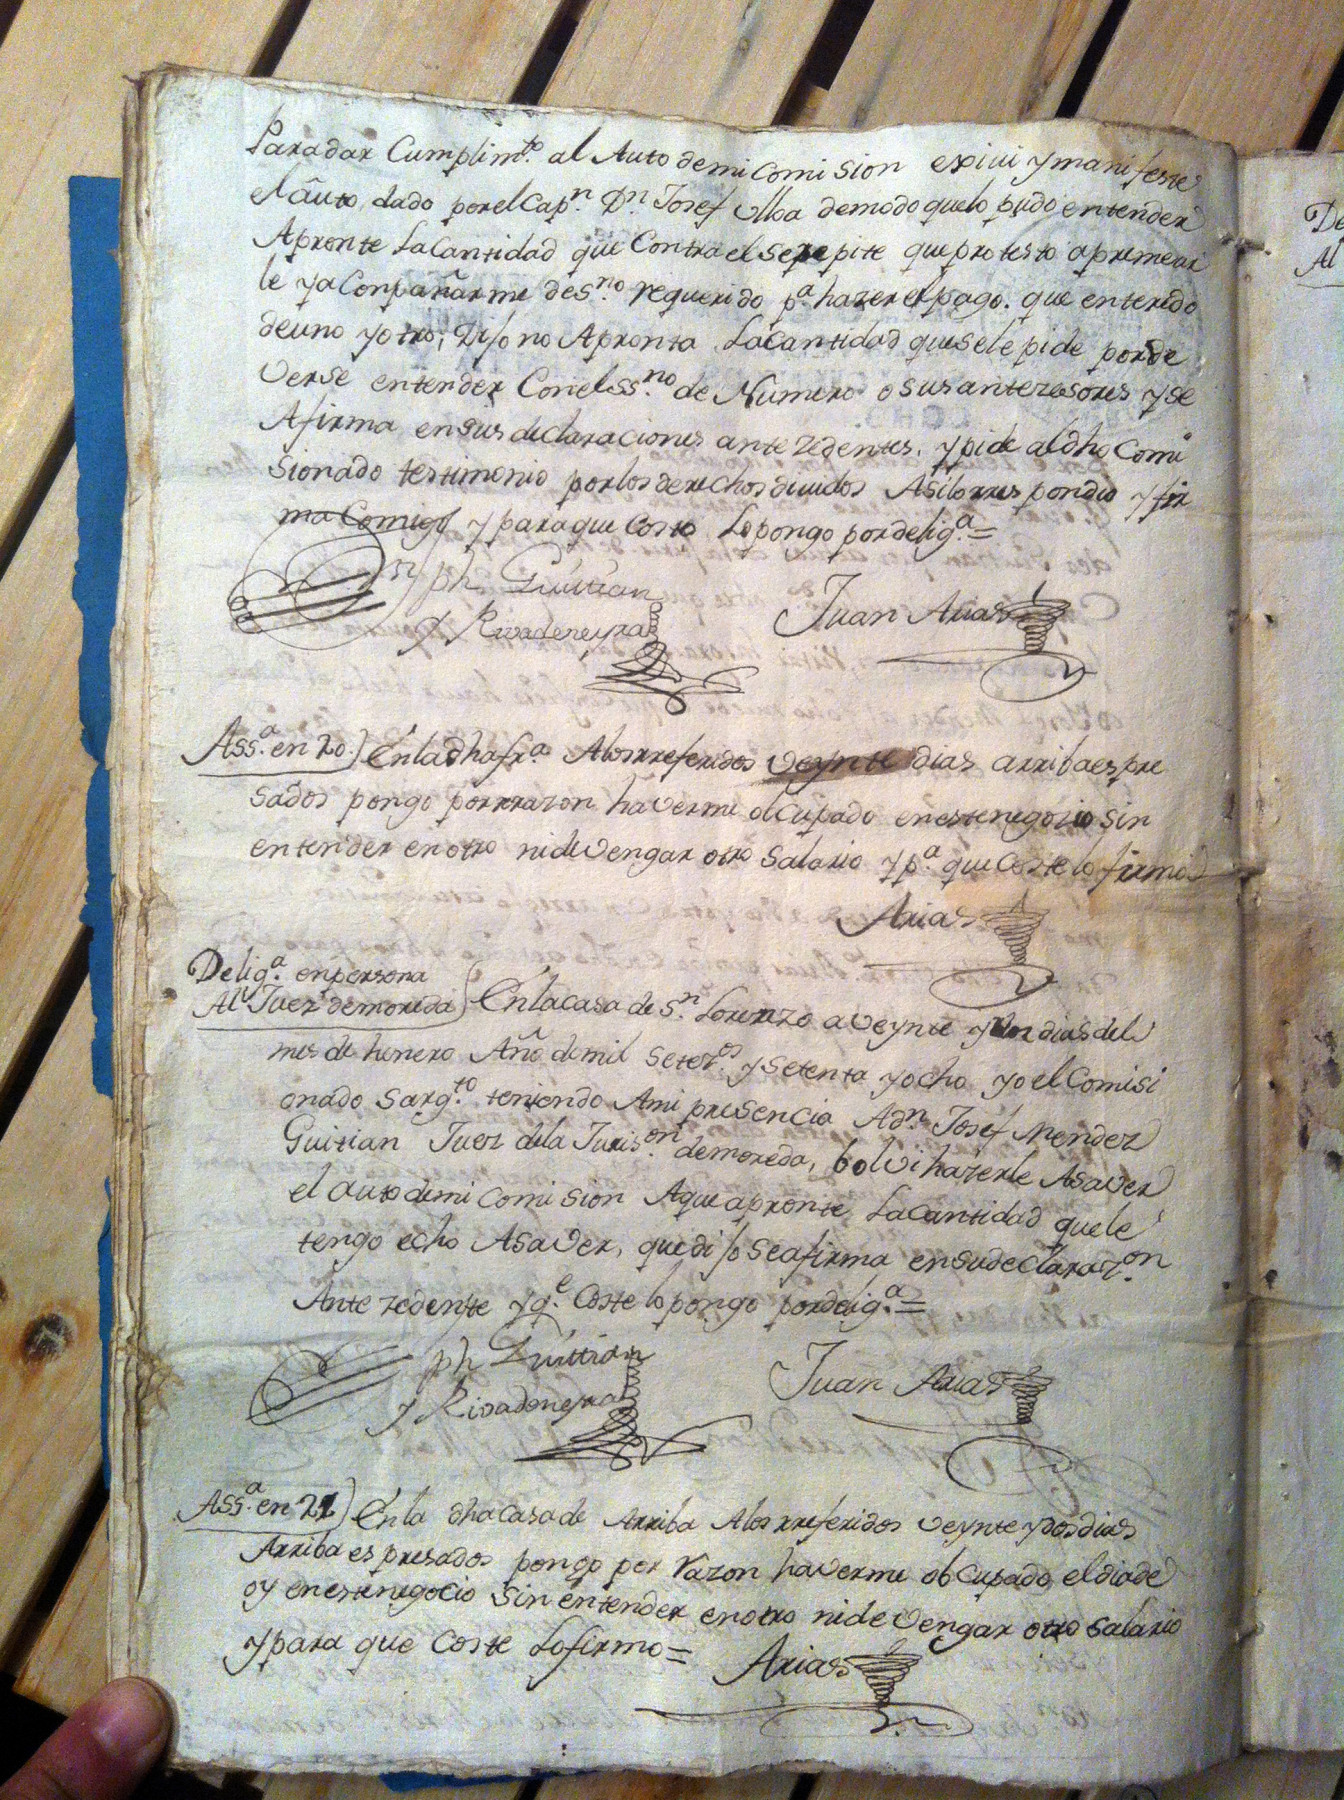 Paradar Cumplimto. al Auto demi comision exivi ymanifeste
el auto dado porelCapn. Dn. Josef Ulloa demodo quelo pudo entender
Apronte LaCantidad que Contra el se repite que protesto apremear
le yaConpañarme desno. requerido pa. hazer el pago. que enterado
deuno yotro, Dijo no Apronta LaCantidad quesele pide porde
verse entender Conelssno. de Numero o sus antezesores y se
Afirma ensus declaraciones antezedentes, ypide aldho Comi
sionado testimonio porlosderechosdevidos Asilorrespondio yfir
ma Comigo y paraque Coste Lopongo pordeliga. =
Jph Guitian
y Rivadeneyra
Juan Arias
Assa. en 20.) Enladhafra. Alosrreferidos veynte dias arribaespre
sados pongo porrrazon haverme obCupado enestenegozio sin
entender enotro nidevengar otro salario y pa. que Coste lo firmo
Arias
Deliga. enpersona
Al Juez demoreda) Enlacasa de Sn. Lorenzo aveynte y dos diasdel
mes de henero Año demil setezos. ysetenta yocho yo el Comisi
onado Sargto. teniendo Ami presencia ADn. Josef Mendez
Guitian Juez dela Jurison. demoreda, bolvi hazerle Asaver
el auto demi comision Aqueapronte LaCantidad quele
tengo echo Asaver, quedijo seafirma ensudeclarazon.
Antezedente yqe. Coste lo pongo pordeliga. =
Jph Guitian
y Rivadeneyra
Juan Arias
Assa. en 22) Enla dhacasade Arriba Alosrreferidos veynteydosdias
Arriba espresados pongo por razon haverme obCupado eldiade
oy enestenegocio Sin entender enotro nidevengar otro salario
ypara que Coste Lofirmo =
Arias
De
Al